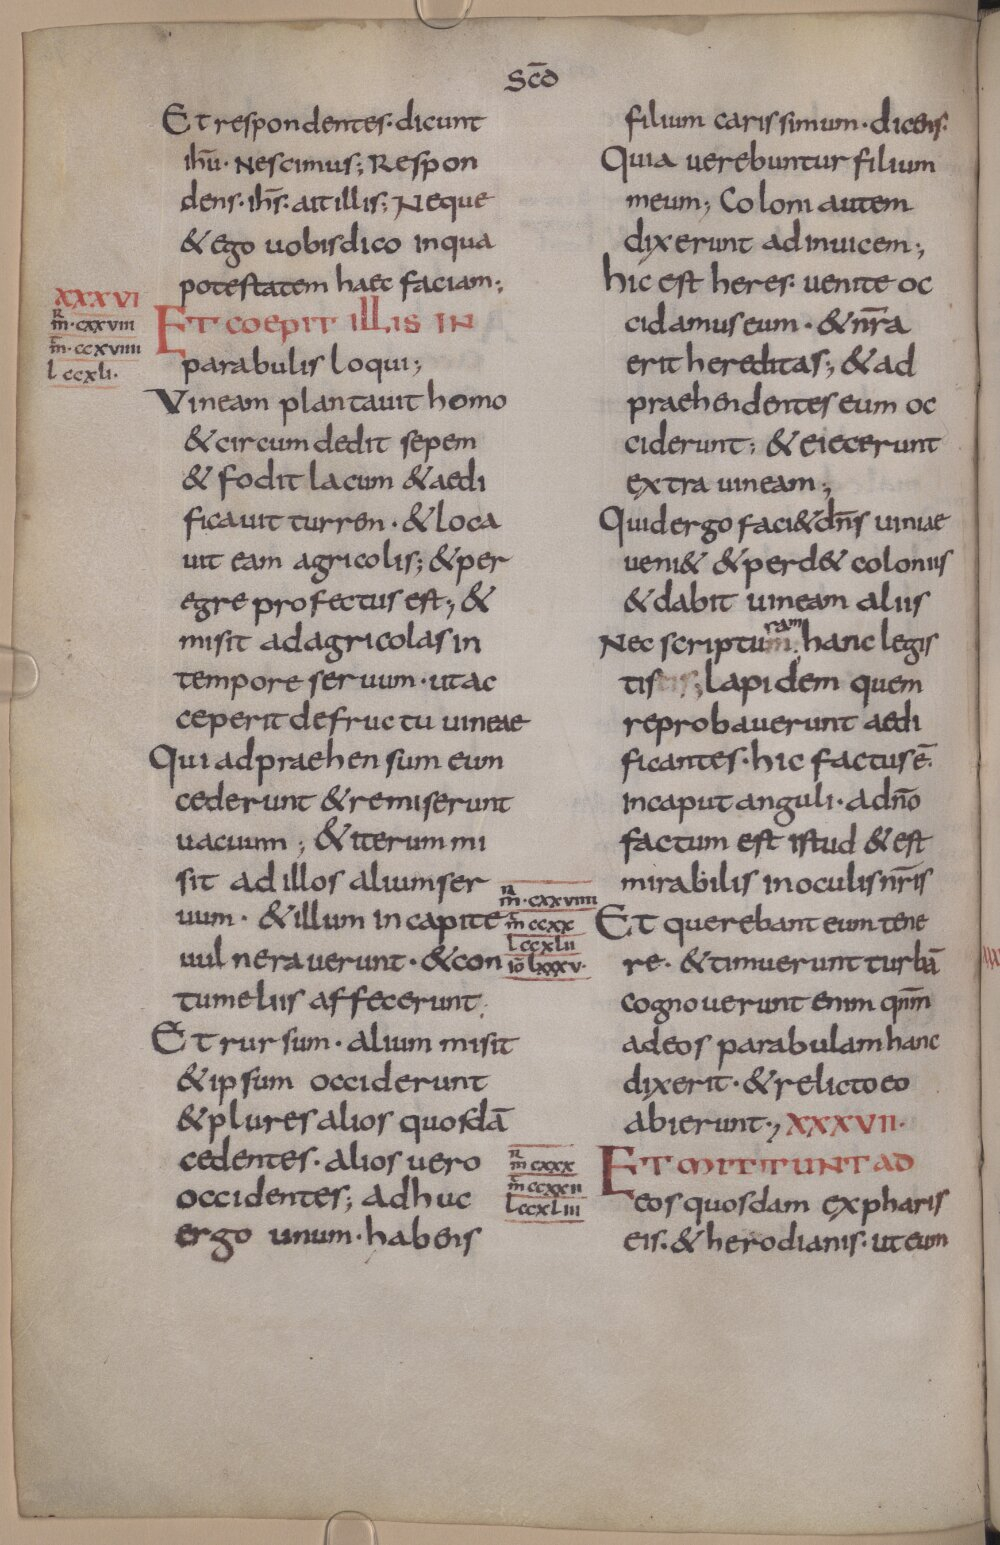 Scd̄
Et respondentes· dicunt
ihū· Nescimus; Respon
dens· ihs̄· ait illis; Neque
& ego uobis dico in qua
potestatem haec faciam;
XXXVI
R
m̄·cxxviii
m̄·ccxviiii
l ccxli·
Et coepit illis in
parabulis loqui;
Vineam plantauit homo
& circumdedit sepem
& fodit lacum & aedi
ficauit turren· & loca
uit eam agricolis; & per
egre profectus est; &
misit ad agricolas in
tempore seruum· ut ac
ceperit de fructu uineae
Qui adpraehensum eum
cederunt & remiserunt
uacuum; & iterum mi
sit ad illos alium ser
uum· & illum in capite
uulnerauerunt· & con
tumeliis affecerunt;
Et rursum· alium misit
& ipsum occiderunt
& plures alios quosdā
cedentes· alios uero
occidentes; adhuc
ergo unum· habens
filium carissimum· dicens·
Quia uerebuntur filium
meum; Coloni autem
dixerunt ad inuicem;
hic est heres· uenite oc
cidamus eum· & nr̄a
erit hereditas; & ad
praehendentes eum oc
ciderunt; & eiecerunt
extra uineam;
Quid ergo faci& dn̄s uiniae
ueni& & perd& coloniis
& dabit uineam aliis
ram
Nec scriptum hanc legis
tistis; lapidem quem
reprobauerunt aedi
ficantes· hic factus ē·
in caput anguli· a dn̄o
factum est istud & est
mirabilis in oculis nr̄is
R
m̄·cxxviiii
m̄ ccxx
l ccxlii
iō lxxxv·
Et querebant eum tene
re· & timuerunt turbā
cognouerunt enim qnm̄
ad eos parabulam hanc
dixerit· & relicto eo
abierunt; XXXVII·
R
m̄ cxxx
m̄ ccxxii
l ccxliii
Et mittunt ad
eos quosdam ex pharis
eis· & herodianis· ut eum